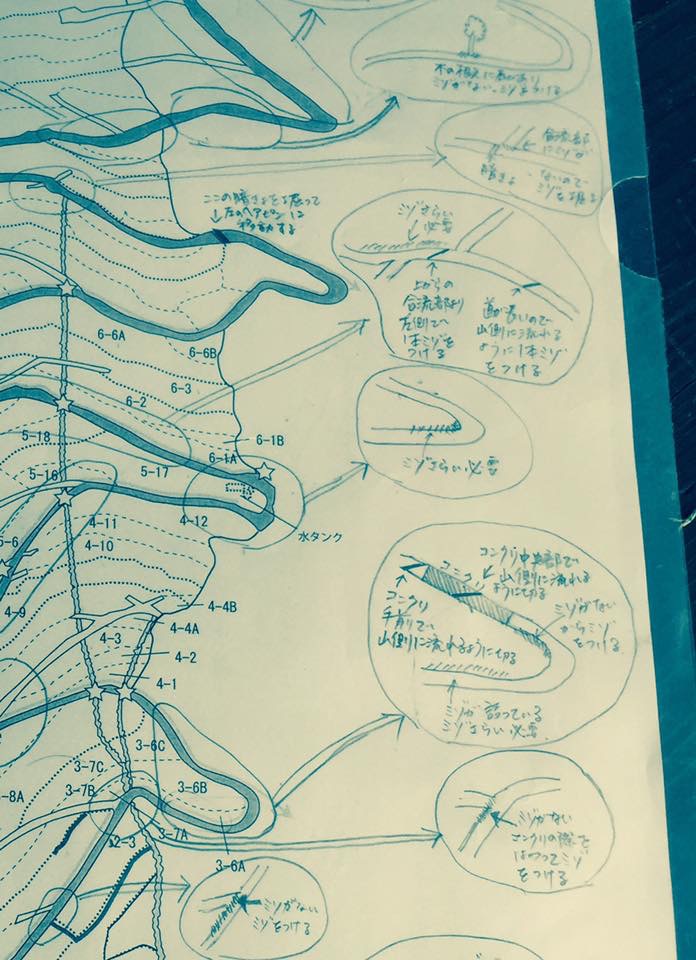 木の根元に
ミゾがない、ミゾをつける
合流部
にミゾが
ないので
ミゾを掘る
暗きょ
ここの暗きょを掘って
左のヘアピンに
移動する
ミゾさらい
必要
上からの
合流部より
左側で
1本ミゾを
つける
道が長いので
山側に流れる
ように1本ミゾ
をつける
6-6A
6-6B
6-3
6-2
6-1B
6-1A
5-18
5-17
5-16
4-12
水タンク
ミゾさらい必要
4-11
4-10
5-6
4-9
4-4B
4-4A
4-3
4-2
4-1
コンクリ中央部で
山側に流れる
ように切る
コンクリ
手前で
山側に流れるように切る
ミゾがない
からミゾ
をつける
ミゾが詰っている
ミゾさらい必要
3-6C
3-7C
3-7B
3-6B
-8A
2-3
3-7A
3-6A
ミゾがない
コンクリの際を
はつってミゾ
をつける
ミゾがない
ミゾをつける